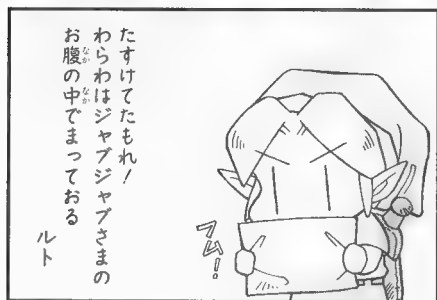 たすけてたもれ!
わらわはジャブジャブさまの
お腹の中でまっておる
ルト
フム!